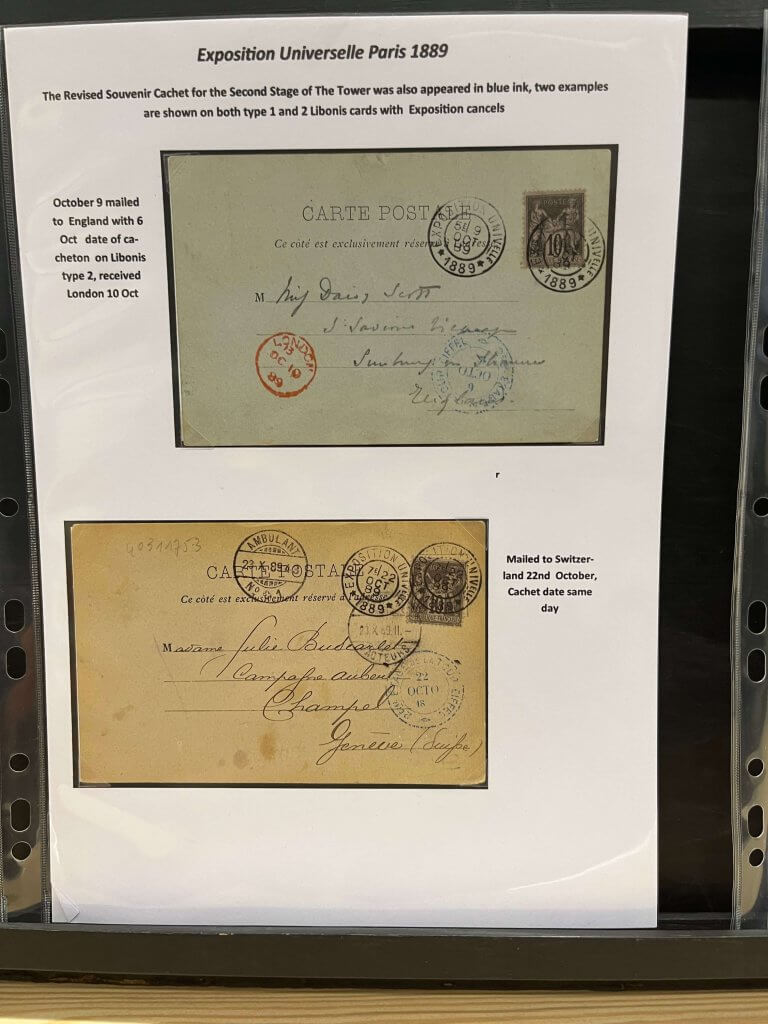 Exposition Universelle Paris 1889
The Revised Souvenir Cachet for the Second Stage of The Tower was also appeared in blue ink, two examples
are shown on both type 1 and 2 Libonis cards with Exposition cancels
October 9 mailed
to England with 6
Oct date of ca-
cheton on Libonis
type 2, received
London 10 Oct
CARTE POSTALE
Ce côté est exclusivement réservé
EXPOSITION UNIVELLE
5E 9
OCT
89
1889
POSTES
10
UNIVELLE
1889
M Miss Daisy Scott
St Saviours Vicarage
Sunbury on Thames
England
LONDON
OC 10
89
EIFFEL
OCTO
6
r
40311753
AMBULANT
23 X 89
No
CARTE POSTALE
Ce côté est exclusivement réservé à l'adresse
EXPOSITION UNIVELLE
7E 22
OCT
89
1889
EXPOSITION UNIVELLE
10
23.X.89.II.-
FACTEURS
Madame Julie
Campagne Aubert
Champel
Genève (Suisse)
ETAGE DE LA TOUR EIFFEL
22
OCTO
18
Mailed to Switzer-
land 22nd October,
Cachet date same
day